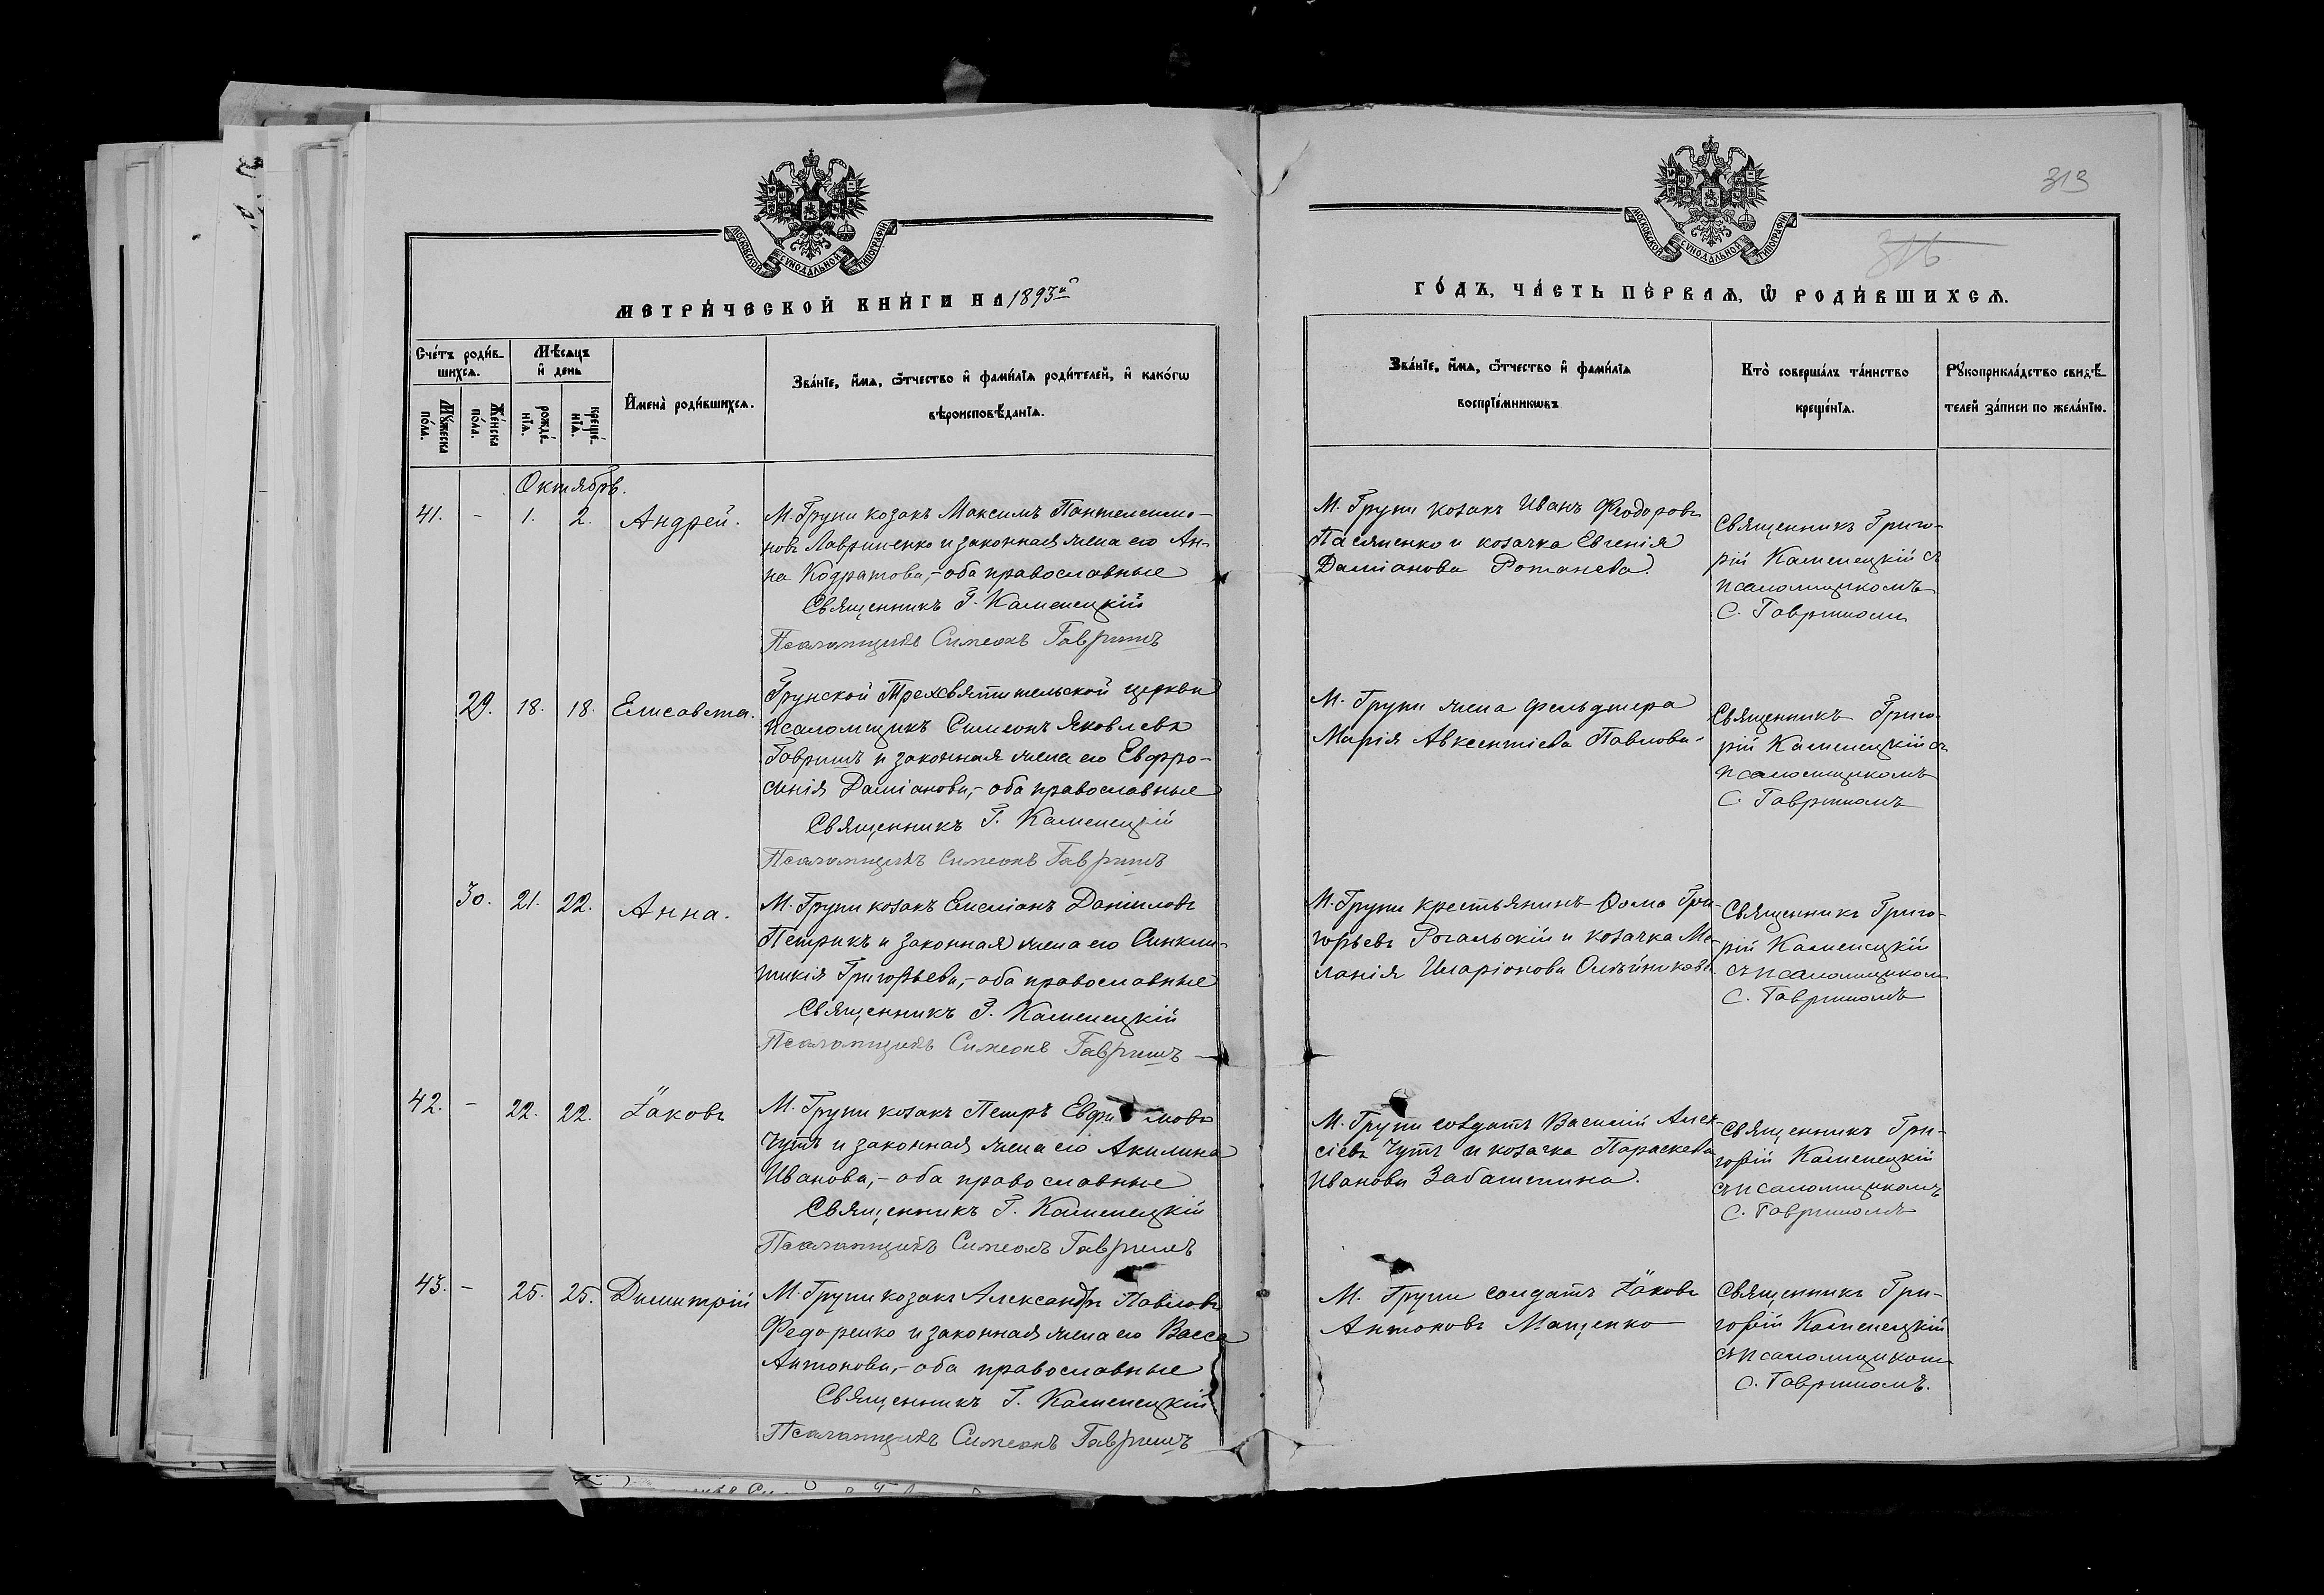 319
316
МОСКОВСКОЙ СѴНОДАЛЬНОЙ ТИПОГРАФІИ
МОСКОВСКОЙ СѴНОДАЛЬНОЙ ТИПОГРАФІИ
МЕТРИ́ЧЕСКОЙ КНИ́ГИ НА 1893й
ГО́ДЪ, ЧА́СТЬ ПЕ́РВАѦ, Ѽ РОДИ́ВШИХСѦ.
Сче́тъ роди́в-
шихсѧ.
Мѣ́сѧцъ
и҆ день
Мꙋ́жеска
по́ла.
Же́нска
по́ла.
рожде́-
нїѧ.
креще́-
нїѧ.
И҆мена̀ роди́вшихсѧ.
Зва́нїе, и҆́мѧ, ѻ҆́тчество и҆ фами́лїѧ роди́телей, и҆ како́гѡ
вѣроисповѣ́данїѧ.
Зва́нїе, и҆́мѧ, ѻ҆́тчество и҆ фами́лїѧ
воспрїе́мникѡвъ
Кто̀ соверша́лъ та́инство
креще́нїѧ.
Рꙋкоприкла́дство свидѣ́-
телей за́писи по жела́нїю.
Октябрь.
41. - 1. 2. Андрей.
М. Груни козакъ Максимъ Пантелеимо-
новъ Лавриненко и законная жена его Ан-
на Кодратова,- оба православные
Священникъ Г. Каменецкій
Псаломщикъ Симеонъ Гавришъ
М. Груни козакъ Иванъ Феодоровъ
Пасященко и козачка Евгенія
Даміанова Ротанева.
Священникъ Григо-
рій Каменецкій съ
псаломщикомъ
С. Гавришомъ
29. 18. 18. Елисавета.
Грунской Трехсвятительской церкви
псаломщикъ Симеонъ Яковлевъ
Гавришъ и законная жена его Евфро-
синія Даміанова,- оба православные
Священникъ Г. Каменецкій
Псаломщикъ Симеонъ Гавришъ
М. Груни жена фельдшера
Марія Авксентіева Павлова.
Священникъ Григо-
рій Каменецкій съ
псаломщикомъ
С. Гавришомъ
30. 21. 22. Анна.
М. Груни козакъ Емеліанъ Даніиловъ
Петрикъ и законная жена его Синкли-
тикія Григорьева,- оба православные
Священникъ Г. Каменецкій
Псаломщикъ Симеонъ Гавришъ
М. Груни крестьянинъ Ѳома Гри-
горьевъ Рогальскій и козачка Ме-
ланія Иларіонова Олейникова.
Священникъ Григо-
рій Каменецкій
съ псаломщикомъ
С. Гавришомъ
42. - 22. 22. Іаковъ
М. Груни козакъ Петръ Евфи мовъ
Чутъ и законная жена его Акилина
Иванова,- оба православные
Священникъ Г. Каменецкій
Псаломщикъ Симеонъ Гавришъ
М. Груни солдатъ Василій Алек-
сіевъ Чутъ и козачка Параскева
Иванова Забаштина.
Священникъ Гри-
горій Каменецкій
съ псаломщикомъ
С. Гавришомъ
43. - 25. 25. Димитрій
М. Груни козакъ Александръ Павловъ
Федоренко и законная жена его Васса
Антонова,- оба православные
Священникъ Г. Каменецкій
Псаломщикъ Симеонъ Гавришъ
М. Груни солдатъ Іаковъ
Антоновъ Мащенко
Священникъ Гри-
горій Каменецкій
съ псаломщикомъ
С. Гавришомъ.